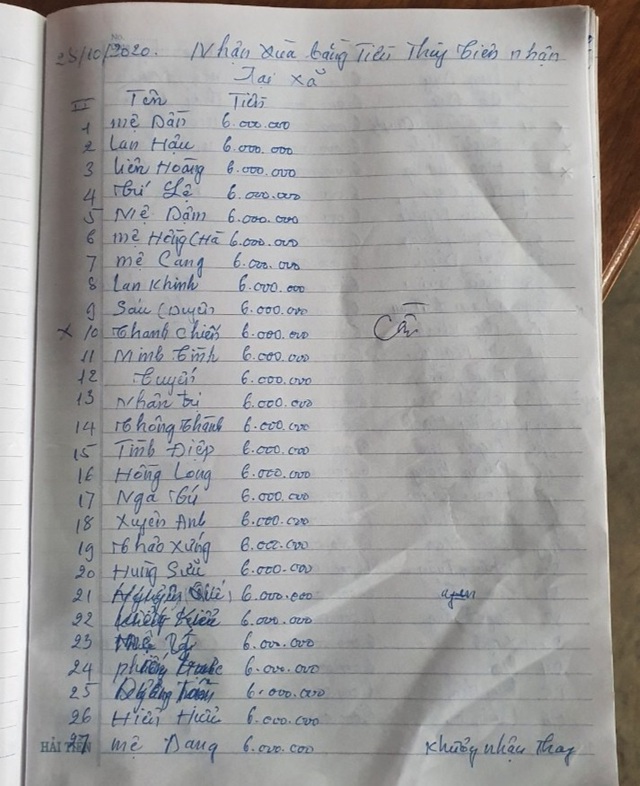 No.
28/10/2020. Nhận xuà bằng Tiền Thủy Tiên nhận
Tại xã
II Tên Tiền
1 mẹ Dần 6.000.000
2 Lan Hậu 6.000.000
3 Liên Hoàng 6.000.000
4 6.000.000
5 Mẹ Dậm 6.000.000
6 mẹ Hồng (Hà 6.000.000
7 mẹ Cang 6.000.000
8 Lan Khinh 6.000.000
9 Sáu (Duyên 6.000.000
x 10 Thanh Chiến 6.000.000
11 Minh Tình 6.000.000
12 Tuyến 6.000.000
13 Nhân Trí 6.000.000
14 Thông Thành 6.000.000
15 Tình Điệp 6.000.000
16 Hồng Long 6.000.000
17 Nga Tú 6.000.000
18 Xuyên Anh 6.000.000
19 Thảo Xứng 6.000.000
20 Hùng Sửu 6.000.000
21 6.000.000
22 6.000.000
23 6.000.000
24 6.000.000
25 6.000.000
26 Hiền Hiếu 6.000.000
27 mẹ Dang 6.000.000 Khương nhận Thay
HẢI TIẾN